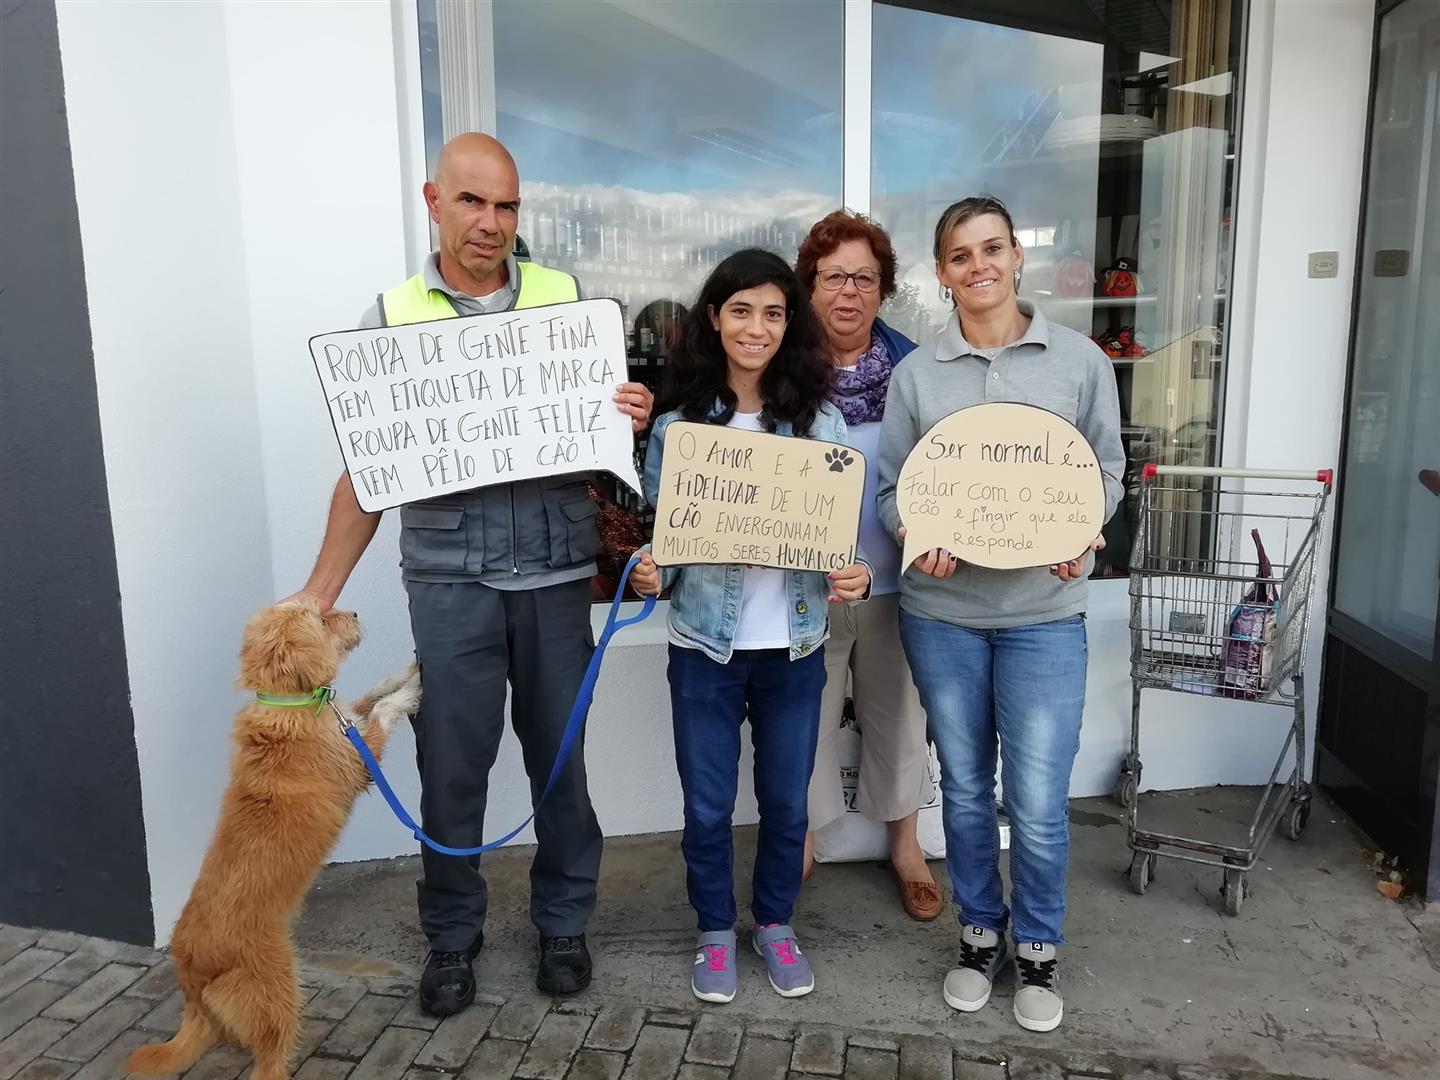 ROUPA DE GENTE FINA
TEM ETIQUETA DE MARCA
ROUPA DE GENTE FELIZ
TEM PÊLO DE CÃO!
O AMOR E A
FIDELIDADE DE UM
CÃO ENVERGONHAM
MUITOS SERES HUMANOS!
Ser normal é...
Falar com o seu
cão e fingir que ele
Responde.